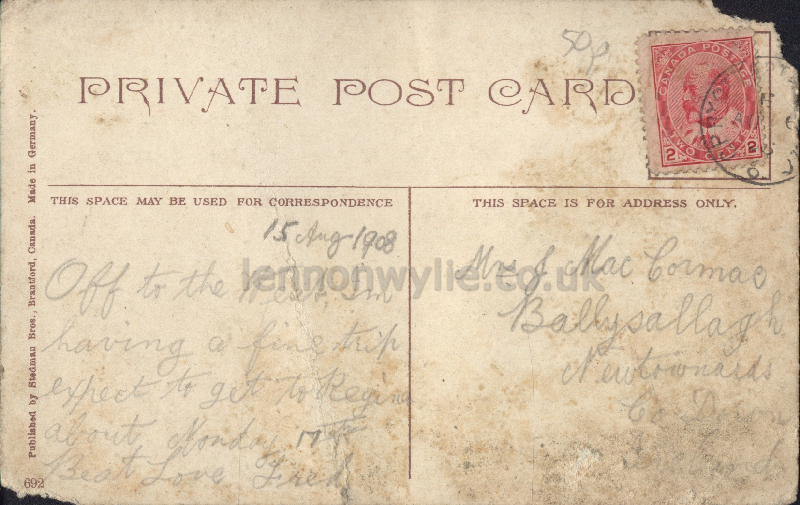 50p
PRIVATE POST CARD
CANADA POSTAGE
2 TWO CENTS 2
THIS SPACE MAY BE USED FOR CORRESPONDENCE
15 Aug 1908
Off to the West. I'm
having a fine trip
expect to get to Regina
about Monday 17th
Best Love Fred
THIS SPACE IS FOR ADDRESS ONLY.
Mrs J Mac Cormac
Ballysallagh
Newtownards
Co Down
lennonwylie.co.uk
Published by Stedman Bros., Brantford, Canada. Made in Germany.
692